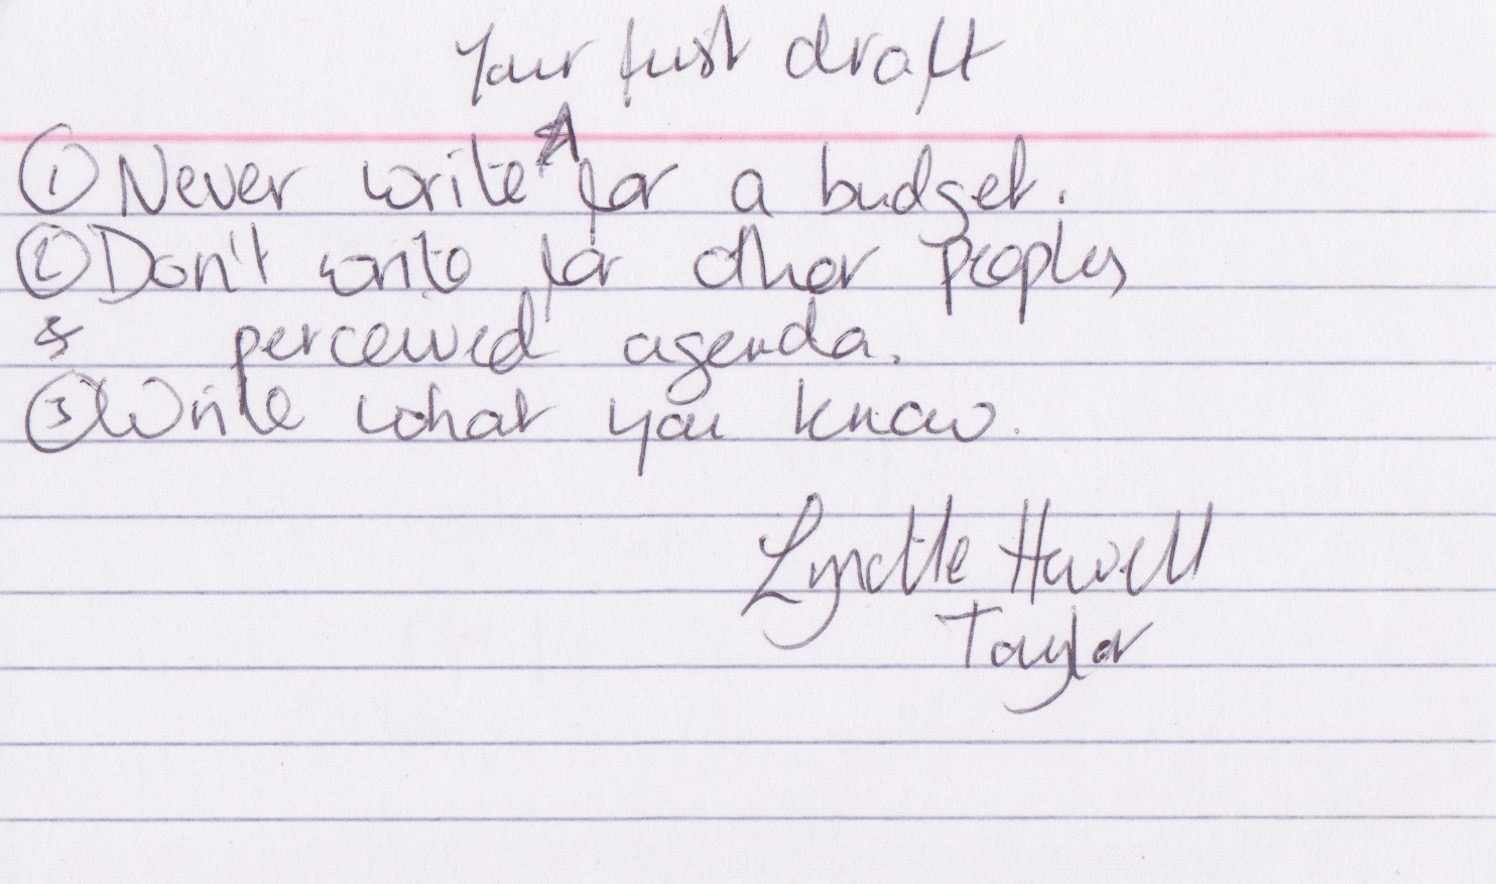 Your first draft
① Never write ^ for a budget.
② Don't write for other peoples
& perceived agenda.
③ Write what you know.
Lynette Howell
Taylor